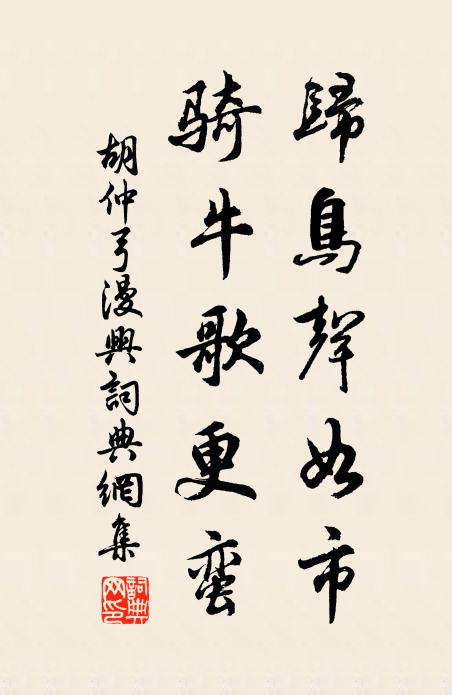 歸鳥聲如市
騎牛歌更蠻
胡仲弓漫興詞典網集
詞典网印